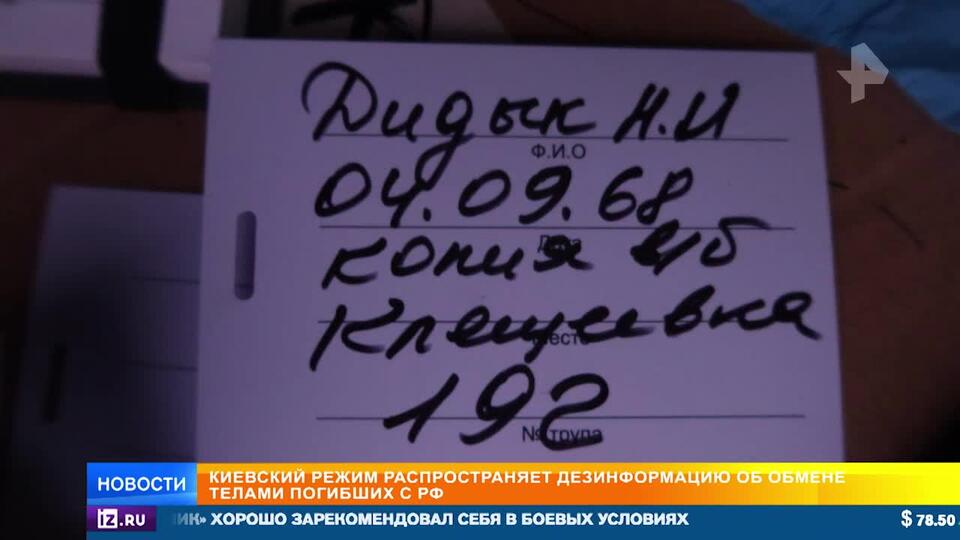 Дидык Н.И
Ф.И.О
04.09.68
копия в/б
Клещеевка
Место
192
№ трупа
НОВОСТИ
КИЕВСКИЙ РЕЖИМ РАСПРОСТРАНЯЕТ ДЕЗИНФОРМАЦИЮ ОБ ОБМЕНЕ
ТЕЛАМИ ПОГИБШИХ С РФ
iz.ru
ИК» ХОРОШО ЗАРЕКОМЕНДОВАЛ СЕБЯ В БОЕВЫХ УСЛОВИЯХ
$ 78.50